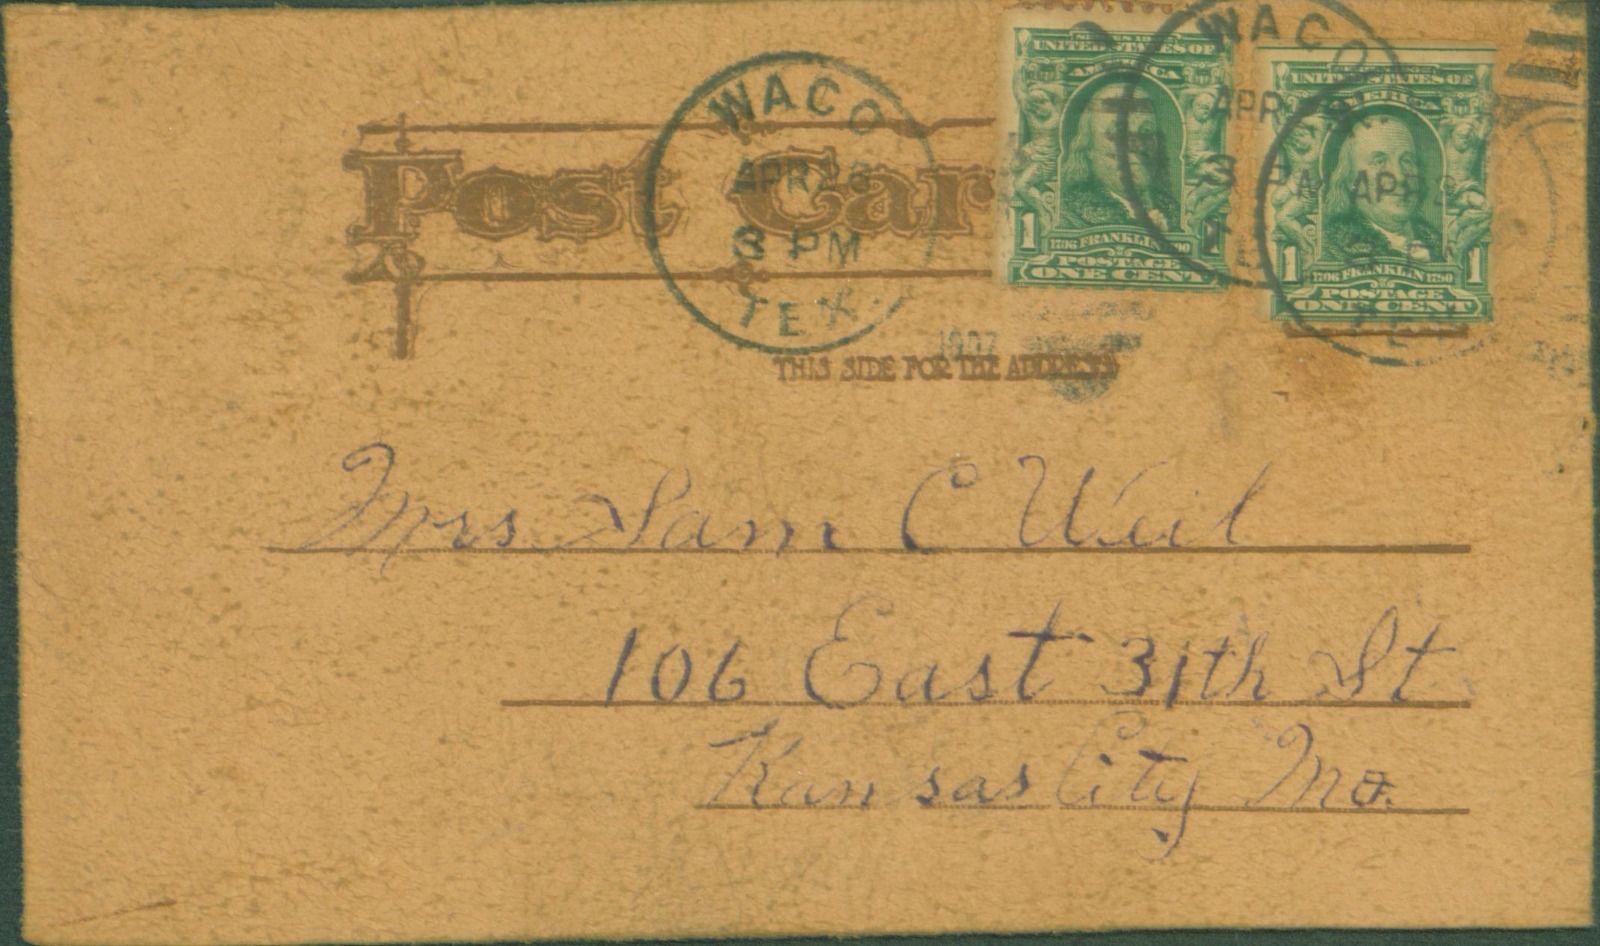 WACO
APR 23
3 PM
TEX.
Post Car
SERIES 1902
UNITED STATES OF
AMERICA
1
1706 FRANKLIN 1790
POSTAGE
ONE CENT
WACO
APR
3 PM
UNITED STATES OF
AMERICA
1 1
1706 FRANKLIN 1790
POSTAGE
ONE CENT
APR 2
1907
THIS SIDE FOR THE ADDRESS
Mrs Sam C Weil
106 East 31th St.
Kansas City Mo.